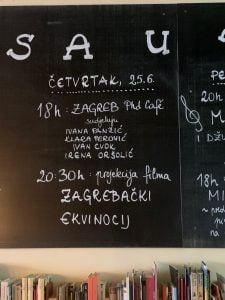 S A U
ČETVRTAK, 25.6.
18h : ZAGREB PhD Café
sudjeluju
IVANA PANŽIĆ
KLARA PEROVIĆ
IVAN CVOK
IRENA ORŠOLIĆ
20:30h : projekcija filma
ZAGREBAČKI
EKVINOCIJ
PE
20h
M
I DŽU
18h
MI
~ pred
na